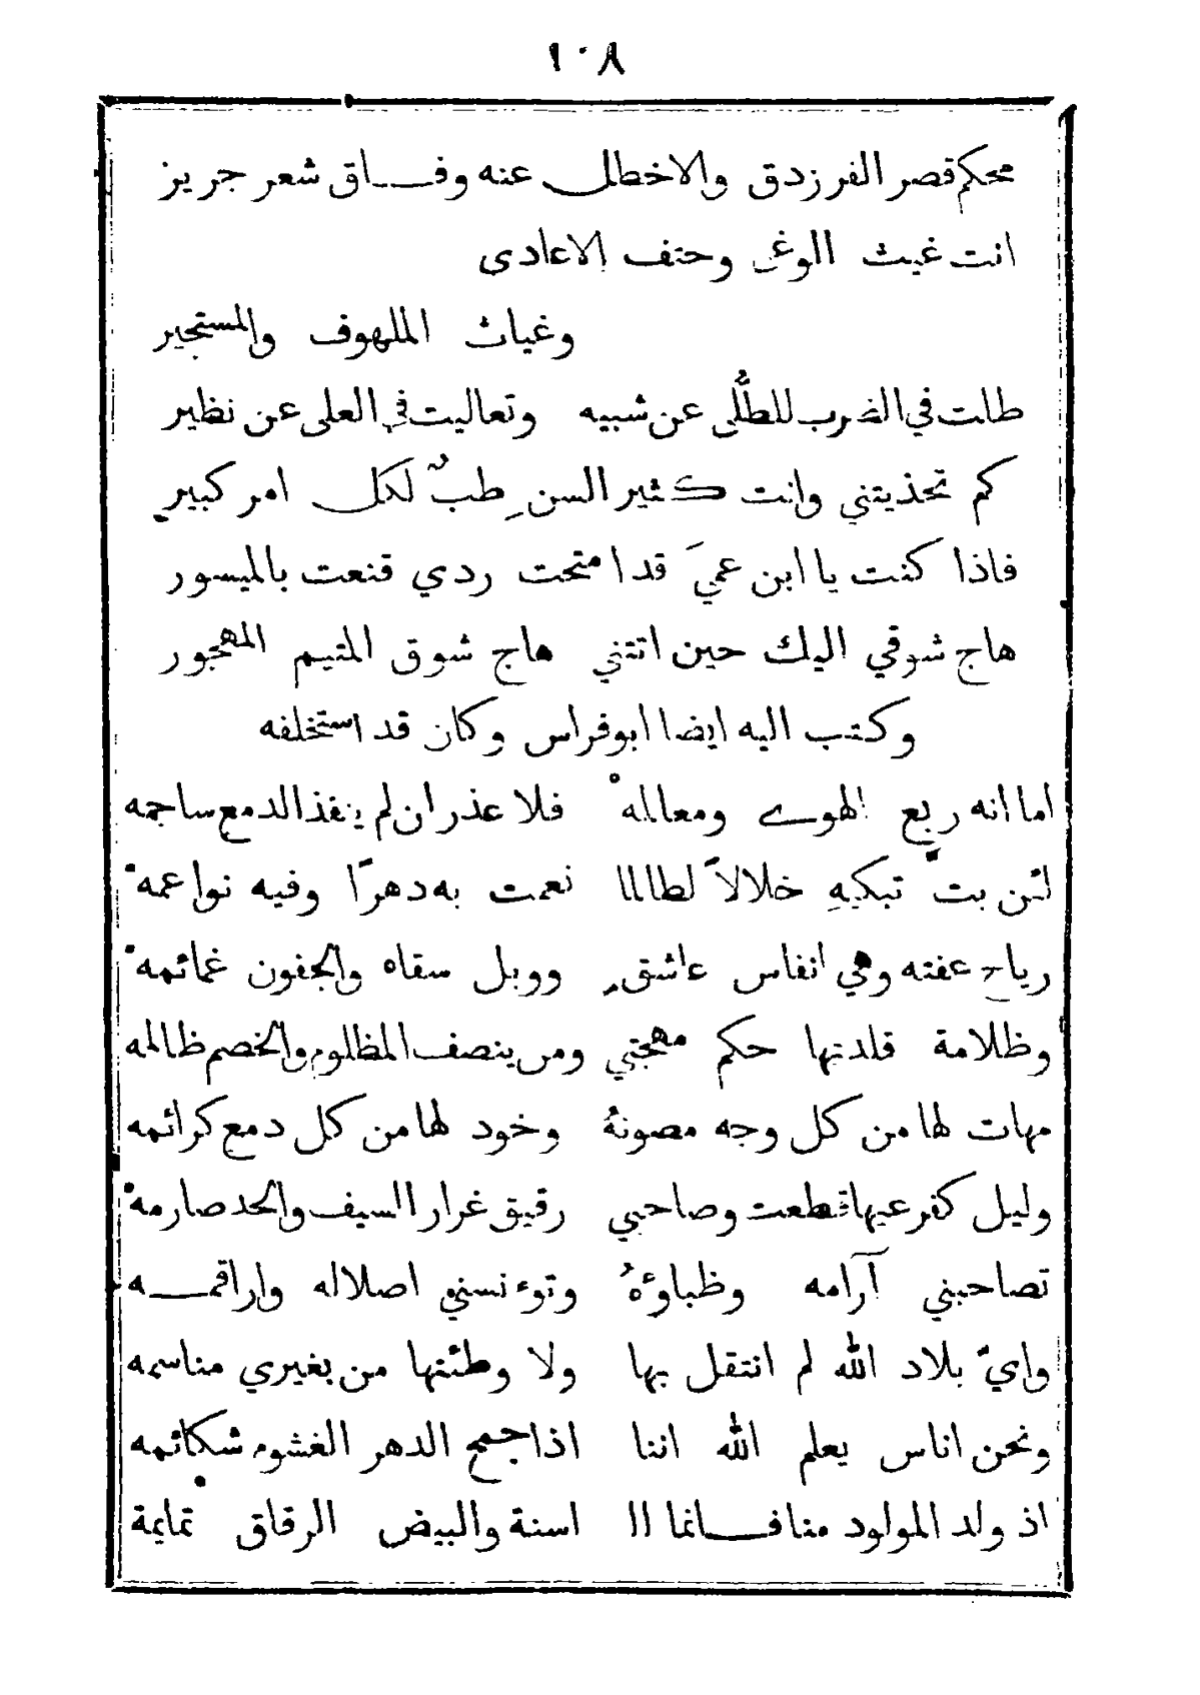 ١٠٨
محكم قصر الفرزدق والاخطل عنه وفاق شعر جريز
انت غيث الوغى وحتف الاعادى
وغياث الملهوف والمستجير
طلت في الضرب للطلَّى عن شبيه وتعاليت في العلى عن نظير
كم تحذيتني وانت كثير السن طبٌ لكل امر كبير
فاذا كنت يا ابن عميَ قدا متحت ردي قنعت بالميسور
هاج شوقي اليك حين اتتني هاج شوق المتيم المهجور
وكتب اليه ايضا ابوفراس وكان قد استخلفه
اما انه ربع الهوے ومعالمهْ فلا عذر ان لم ينفذ الدمع ساجمه
لئن بت تبكيهِ خلالاً لطالما نعمت به دهرًا وفيه نواعمه
رياح عفته وهي انفاس عاشقٍ ووبل سقاه والجفون غمائمه
وظلامة قلدتها حكم مهجتي ومن ينصف المظلوم والخصم ظالمه
مهات لها من كل وجه مصونهُ وخود لها من كل دمع كرائمه
وليل كفرعيها قطعت وصاحبي رقيق غرار السيف والحد صارمه
تصاحبني آرامه وظباؤهُ وتوءنسني اصلاله واراقمه
وايّ بلاد الله لم انتقل بها ولا وطئتها من بغيري مناسمه
ونحن اناس يعلم الله اننا اذا جمح الدهر الغشوم شكائمه
اذ ولد المولود منا فانما ال اسنة والبيض الرقاق تمايمة